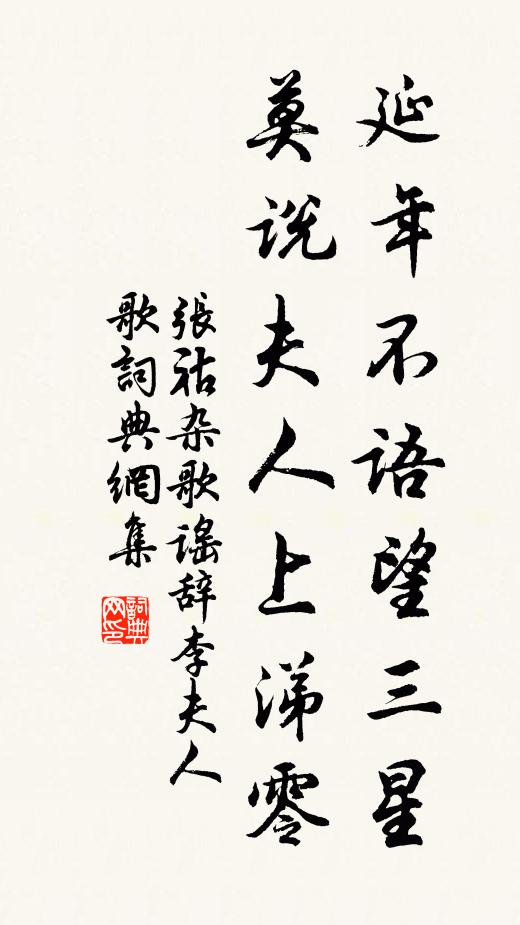 延年不语望三星
莫说夫人上涕零
張祜杂歌谣辞李夫人
歌詞典網集
詞典
网印